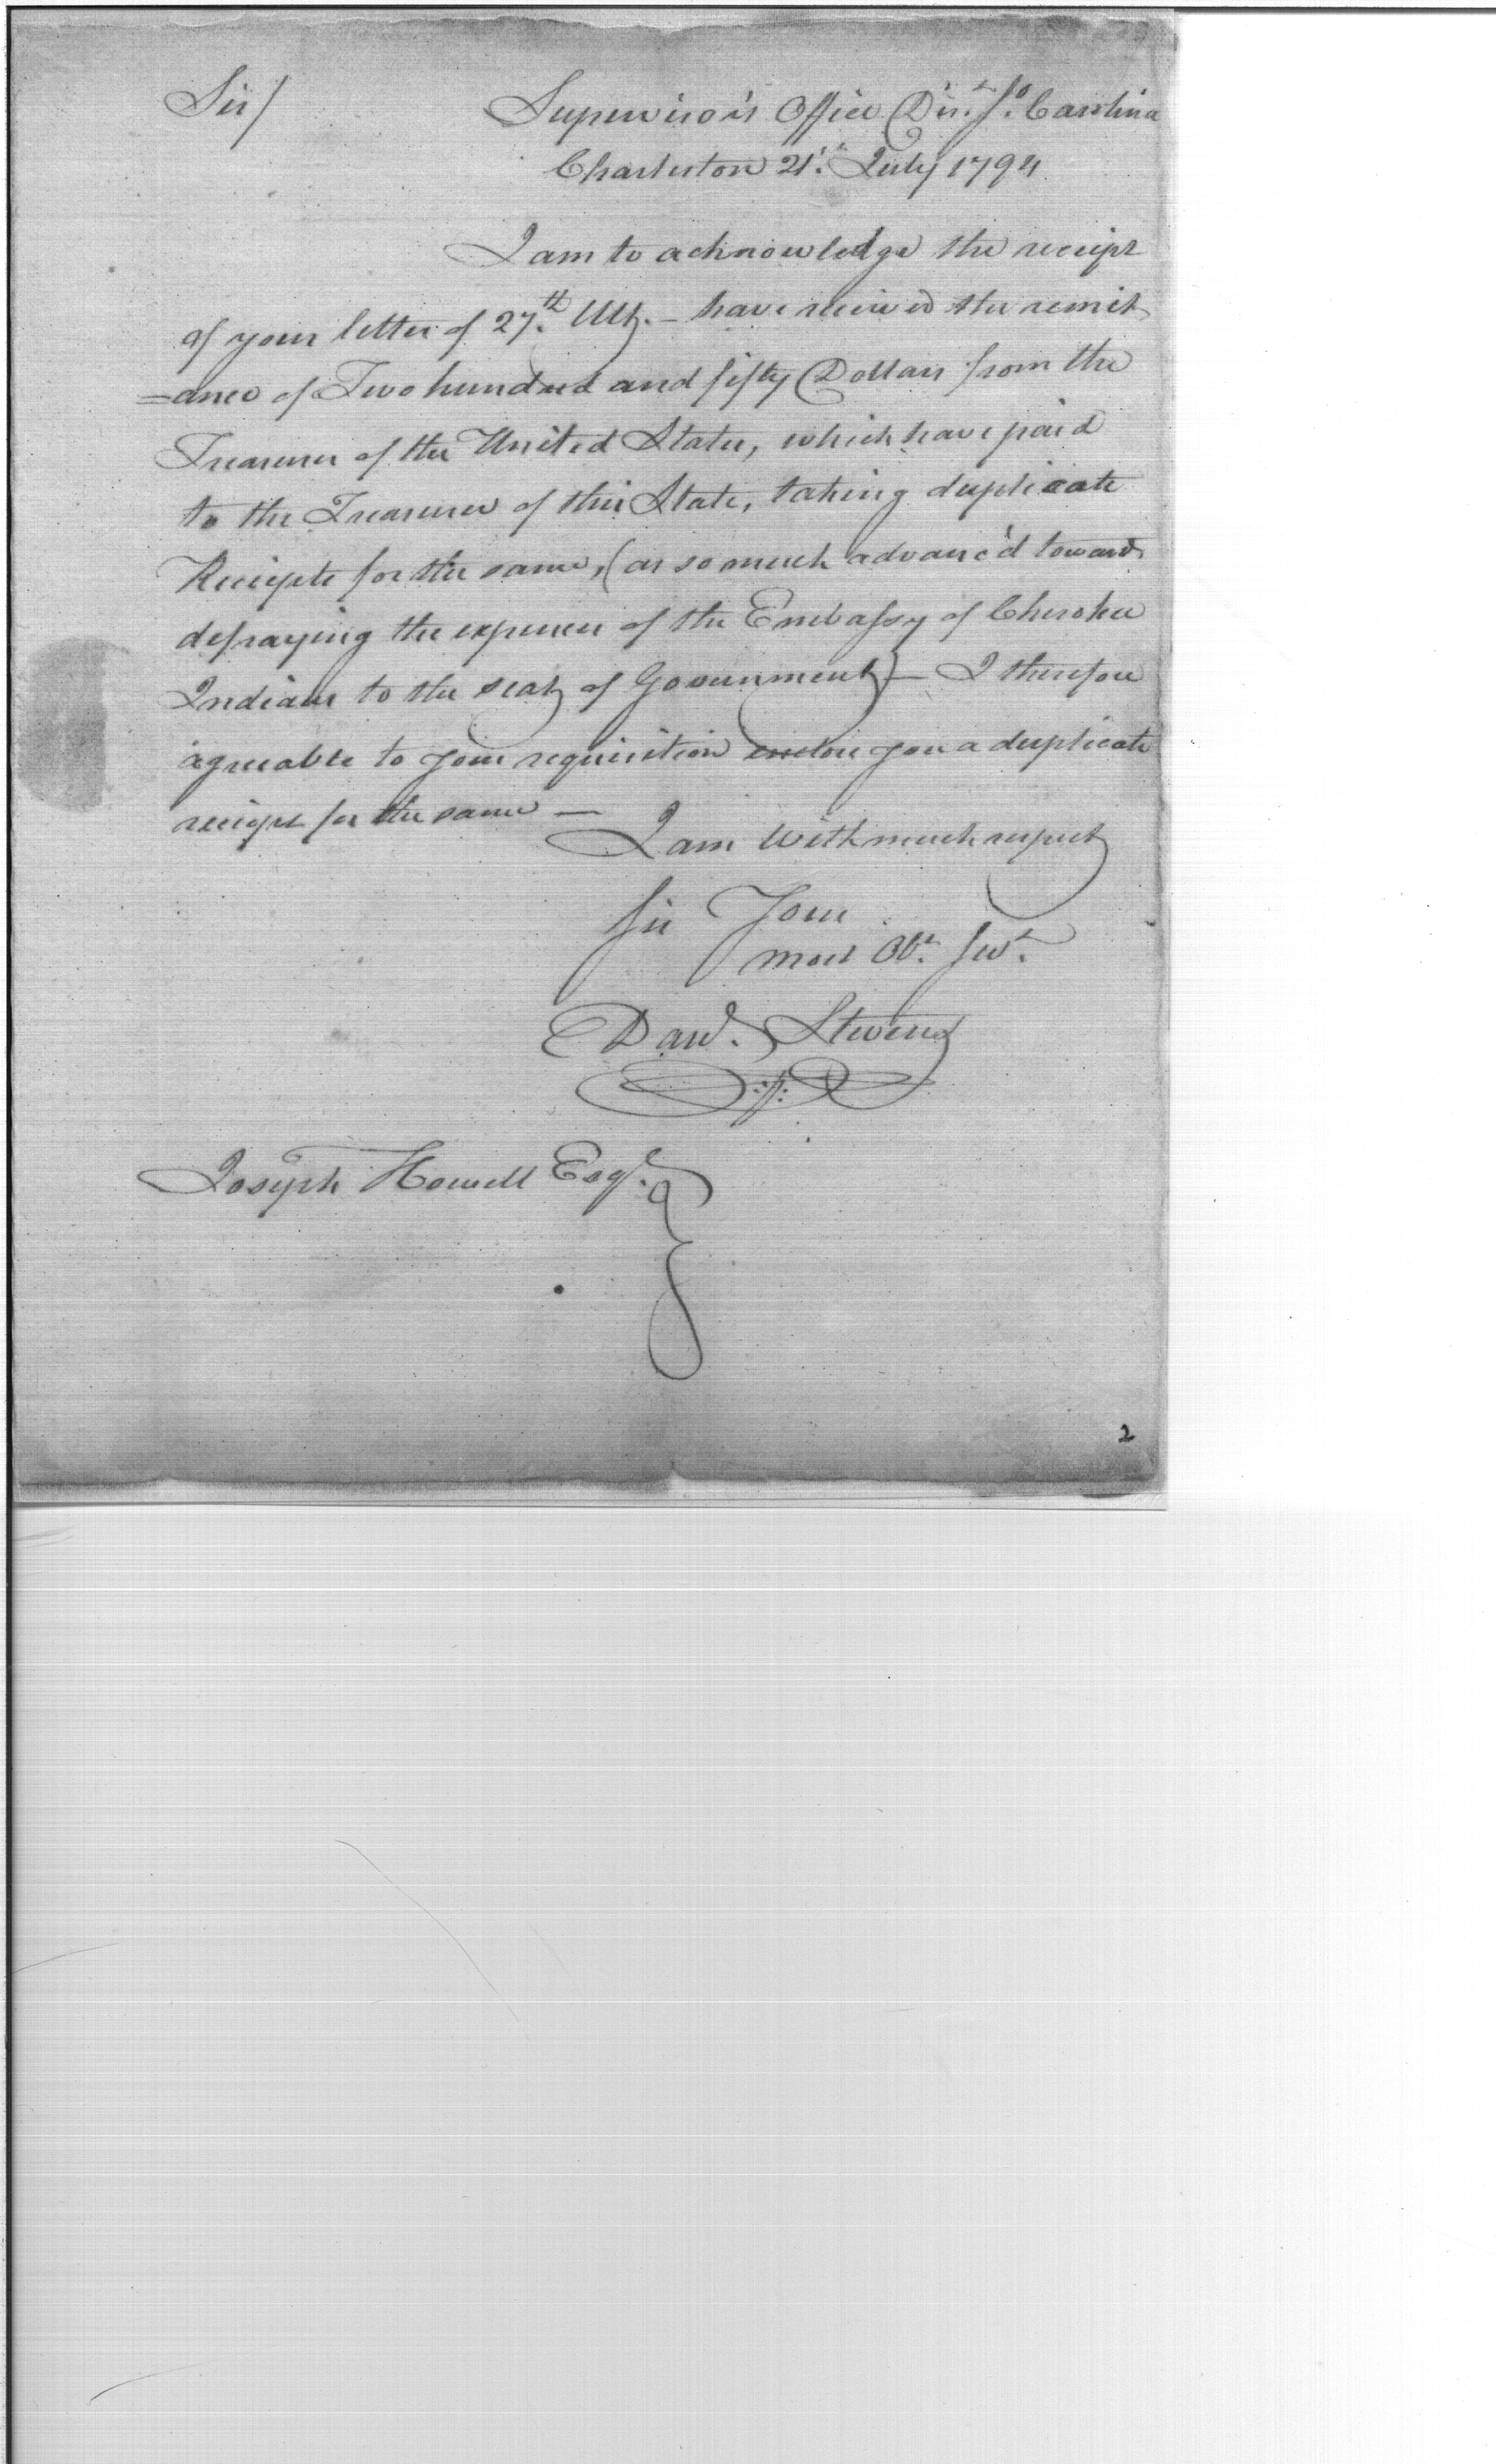 Sir/
Supervisor's Office Dist. So. Carolina
Charleston 21st. July 1794
I am to acknowledge the receipt
of your letter of 27th. Ult. – have received the remit
=ance of Two hundred and fifty Dollars from the
Treasurer of the United States, which have paid
to the Treasurer of this State, taking duplicate
Receipts for the same, (as so much advanc'd towards
defraying the expences of the Embassy of Cherokee
Indians to the seat of Government) – I therefore
agreeable to your requisition enclose you a duplicate
receipt for the same —
I am With much respect
Sir Your
most Obt. Sert.
Danl. Stevens
Joseph Howell Esqr.
2